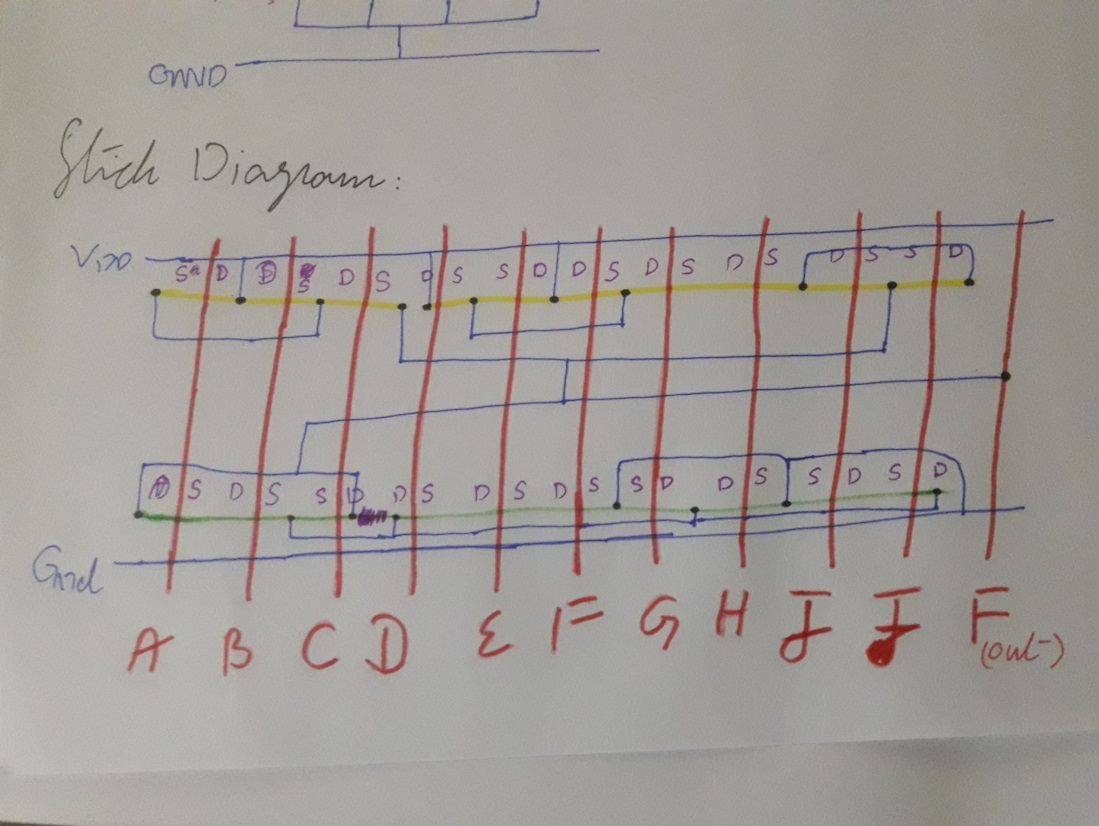 GND
Stick Diagram:
VDD
S D D S D S D S S D D S D S D S D S S D
D S D S S D D S D S D S S D D S S D S D
Gnd
A B C D E F G H I J F
(out)